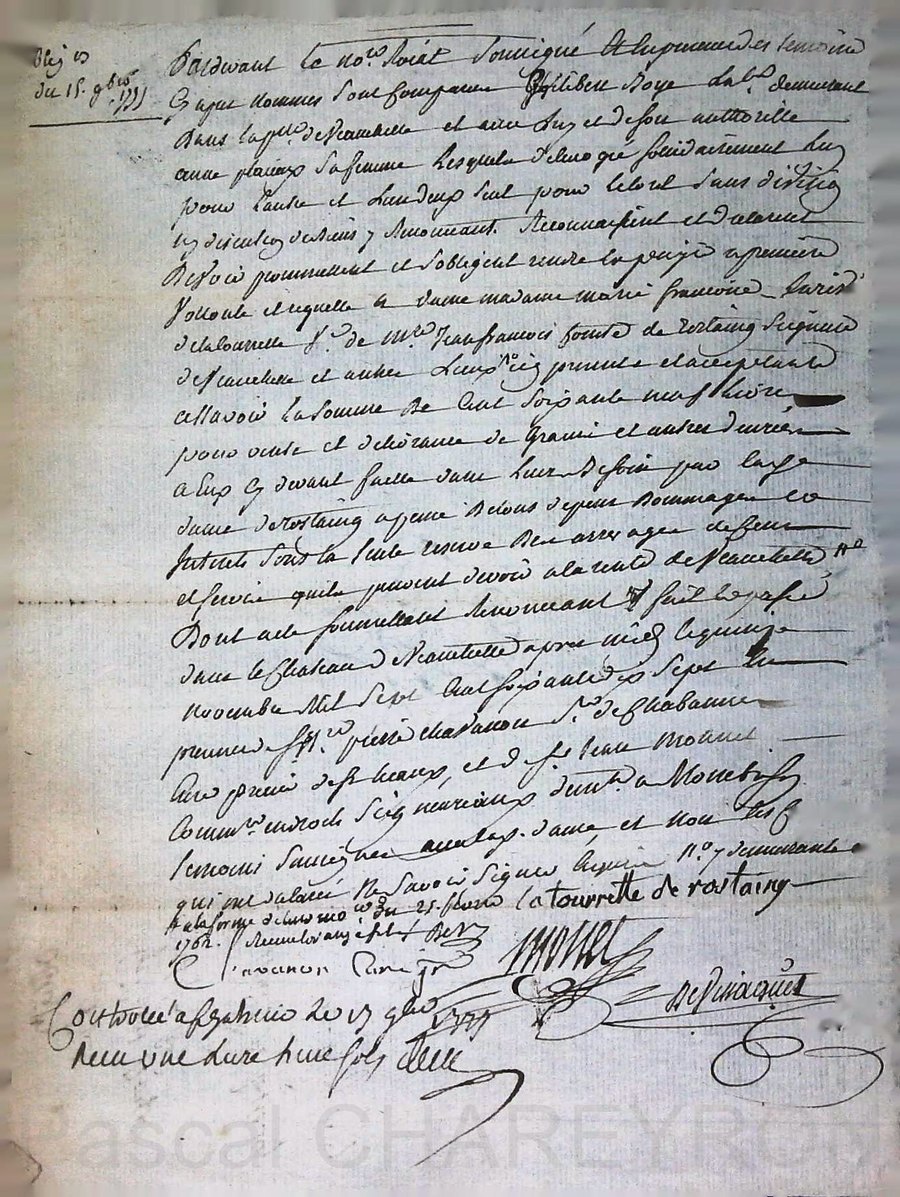 du 15. 9bre
1777
Pardevant le no.re Roial soussigné et en presence des temoins
Cy apres nommes sont comparus Philibert Boye lab.r demeurant
Dans la p.sse de Veauchette et avec luy et de son authorité
anne sa femme Lesquels de leur gré solidairement Lun
pour Lautre et Lun deux seul pour le tout sans division
ny discution de biens y Renonceant. Reconnaissent et déclarent
Devoir promettent et sobligent rendre et payer a premiere
Volonté et requette a dame madame marie françoise
delatourrette V.e de m.re Jean francois Comte de rostaing Seigneur
de Veauchette et autres Lieux icy presente et acceptante
assavoir La somme De Cent soixante neuf livres
pour vente et delivrance de grains et autres denrées
a Eux Cy devant faitte dans Leurs Besoin par lad.e
dame de rostaing a peine De tous depens Dommages et
Interets sous la seule reserve Des arrerages de Cens
et servis quils peuvent devoir a la rente de Veauchette
Dont acte soumettant Renonceant fait et passé
dans le Chateau de Veauchette apres midy le quinze
novembre Mil Sept Cent soixante dix sept En
presence de pierre chavanon S.r de Chabanne
Curé de et de S.r Jean monnet
Comm.re en droits Seigneuriaux a Montbrison
temoins soussignés avec lad. dame et non les
qui ont déclaré Ne Savoir Signer Enquis demeurants
a la forme du 25. la tourrette de rostaing
1762.
Chavanon Curé monet
De Vinaquet
Controllé a le 17 9bre 1777
Recu une livre
Pascal CHAREYRON